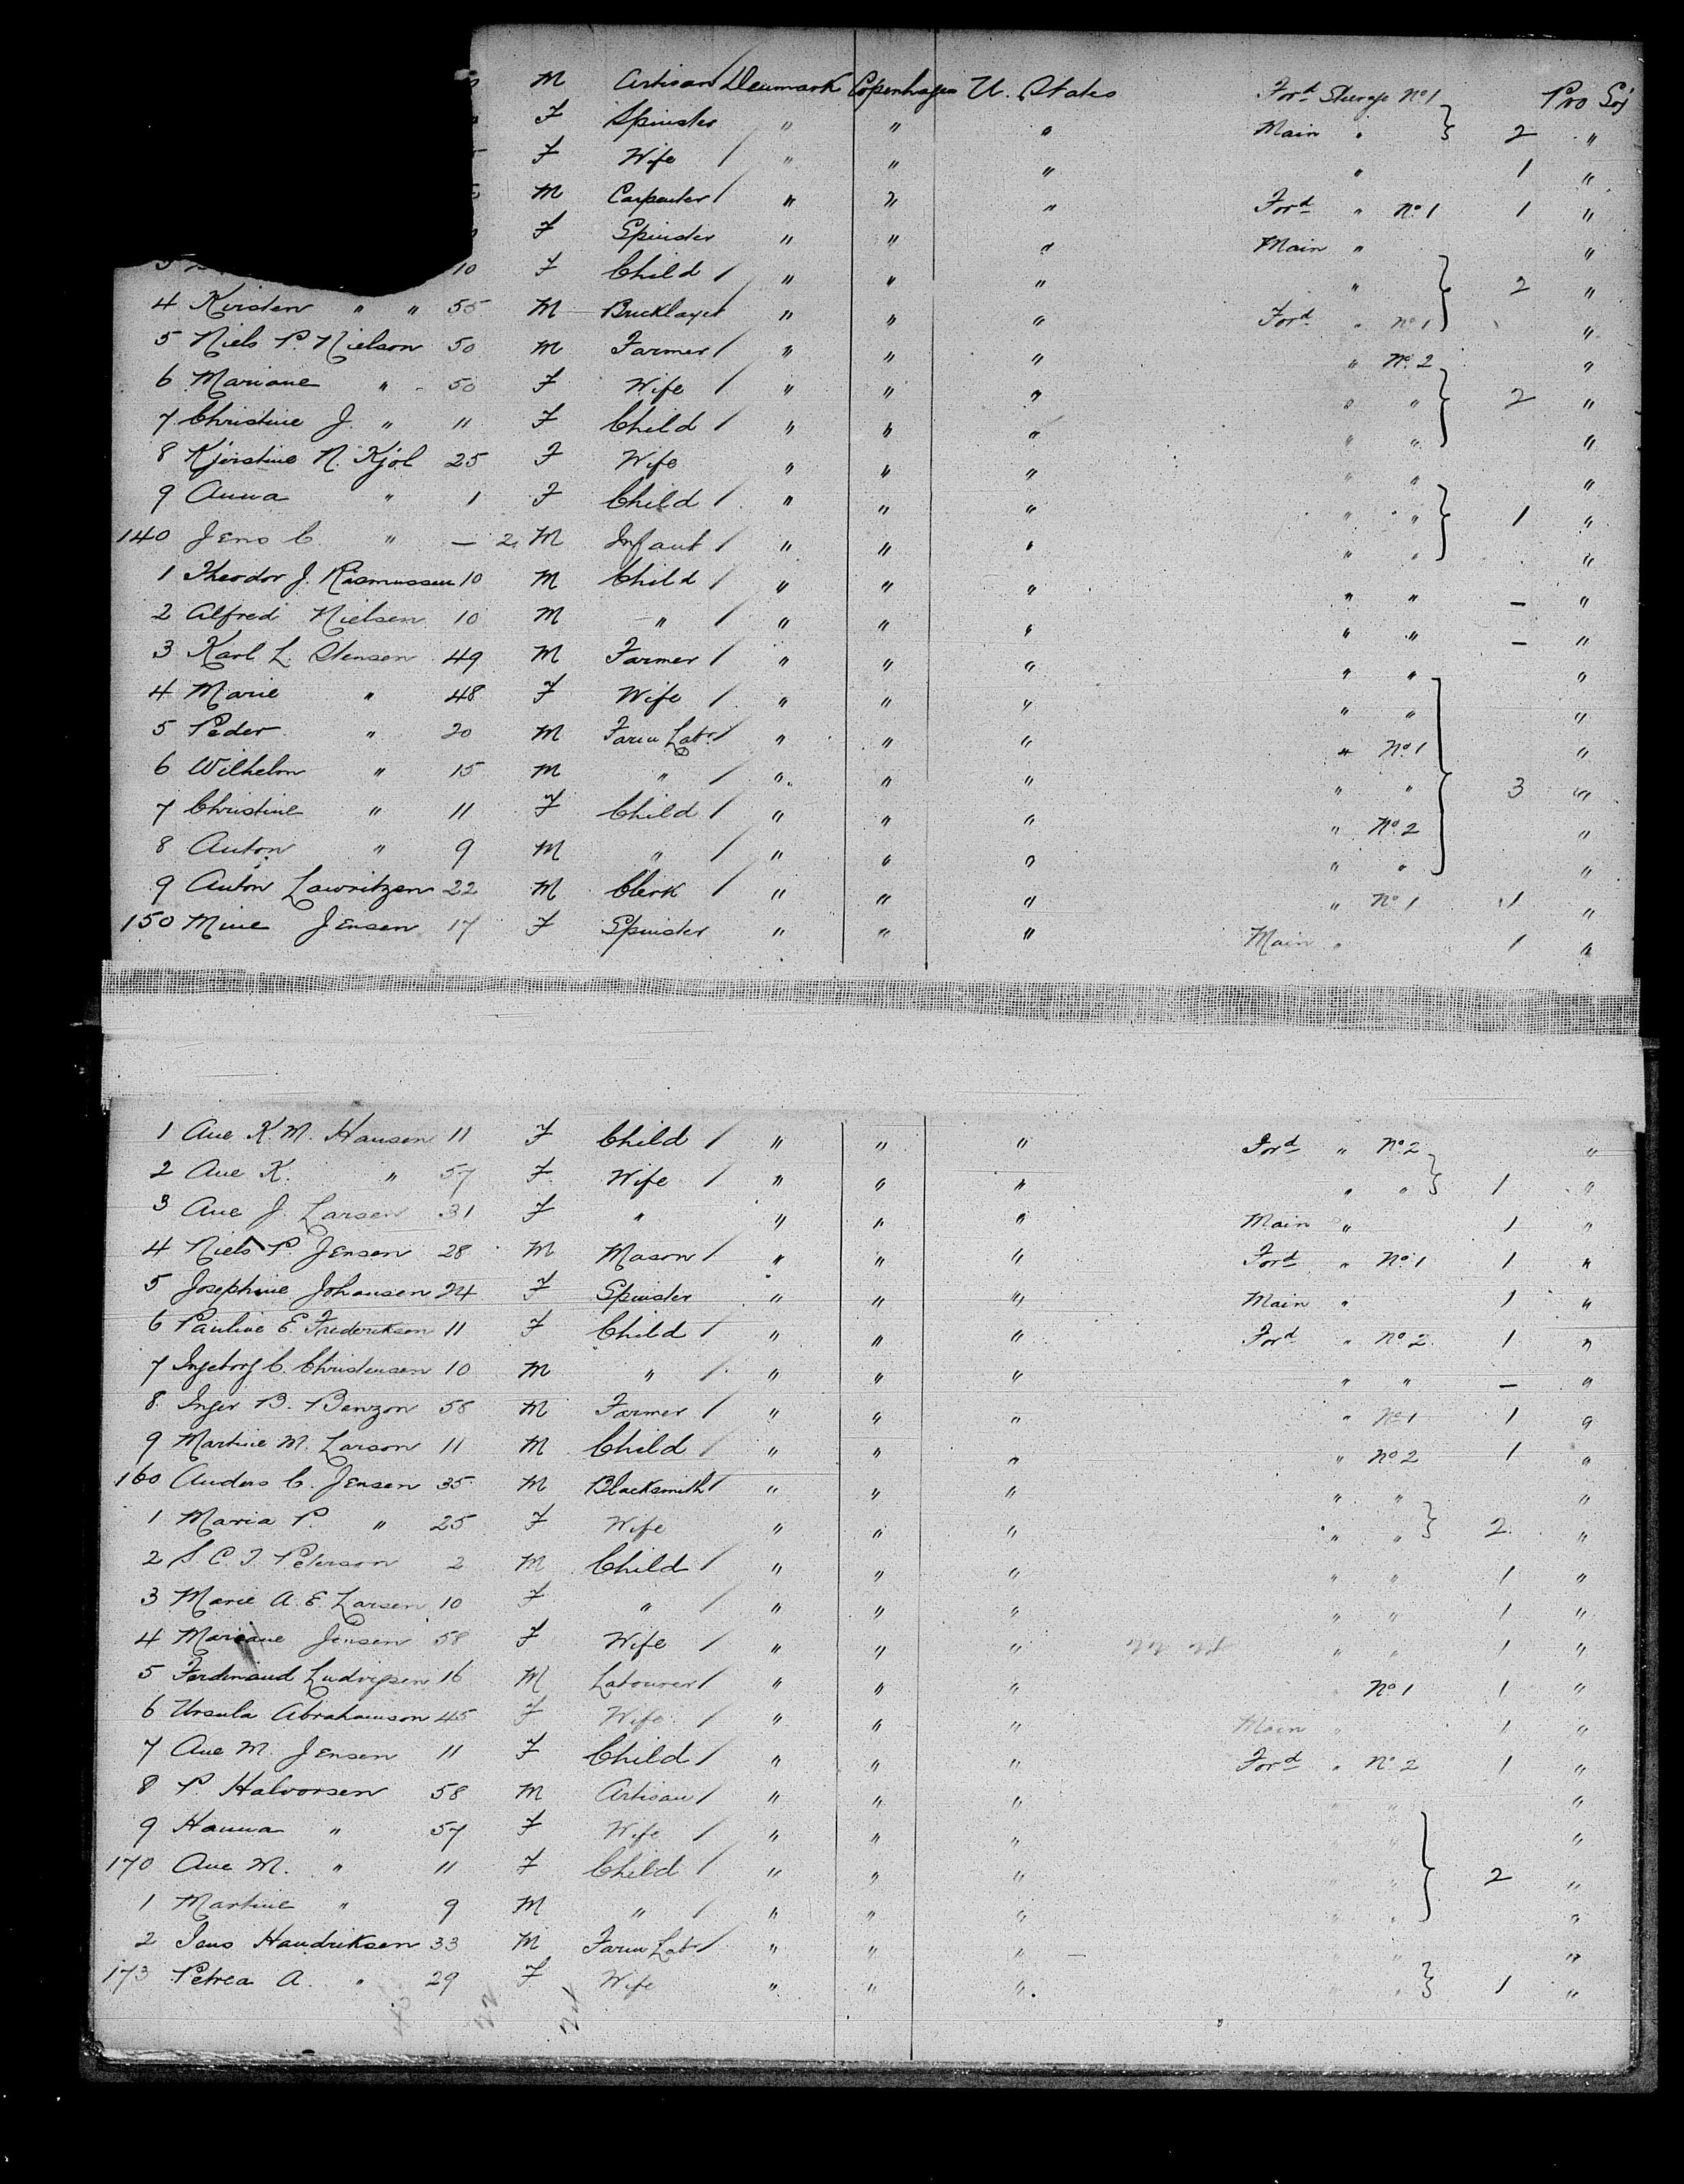 M Artisan Denmark Copenhagen U. States For^d Steerage No 1 Pro Soj
F Spinster " " " Main " 2 "
F Wife " " " " 1 "
M Carpenter " " " For^d " No 1 1 "
F Spinster " " " Main " "
10 F Child " " " " 2 "
4 Kirsten " " 55 M Bricklayer " " " For^d " No 1 "
5 Niels P. Nielson 50 M Farmer " " " " No 2 "
6 Mariane " 50 F Wife " " " " " 2 "
7 Christine J. " 11 F Child " " " " " "
8 Kjerstine N. Kjöl 25 F Wife " " " " " "
9 Anna " 1 F Child " " " " " 1 "
140 Jens C " — 2 M Infant " " " " " "
1 Theodor J. Rasmussen 10 M Child " " " " " — "
2 Alfred Nielsen 10 M " " " " " " — "
3 Karl L. Stensen 49 M Farmer " " " " " "
4 Marie " 48 F Wife " " " " " "
5 Peder " 20 M Farm Lab^r " " " " No 1 "
6 Wilhelm " 15 M " " " " " " 3 "
7 Christine " 11 F Child " " " " No 2 "
8 Anton " 9 M " " " " " " "
9 Anton Lawritzen 22 M Clerk " " " " No 1 1 "
150 Mine Jensen 17 F Spinster " " " Main " 1 "
1 Ane K. M. Hansen 11 F Child " " " For^d " No 2 "
2 Ane K. " 57 F Wife " " " " " 1 "
3 Ane J. Larsen 31 F " " " " Main " 1 "
4 Niels P. Jensen 28 M Mason " " " For^d " No 1 1 "
5 Josephine Johansen 24 F Spinster " " " Main " 1 "
6 Pauline E. Frederiksen 11 F Child " " " For^d " No 2 1 "
7 Ingeborg C. Christensen 10 M " " " " " " — "
8 Inger B. Benzon 58 M Farmer " " " " No 1 1 "
9 Martine M. Larson 11 M Child " " " " No 2 1 "
160 Anders C. Jensen 35 M Blacksmith " " " " " "
1 Maria P. " 25 F Wife " " " " " 2 "
2 S. C. J. Peterson 2 M Child " " " " " 1 "
3 Marie A. E. Larsen 10 F " " " " " " 1 "
4 Mariane Jensen 58 F Wife " " " " " 1 "
5 Ferdinand Ludvigsen 16 M Labourer " " " No 1 1 "
6 Ursula Abrahamson 45 F Wife " " " Main " 1 "
7 Ane M. Jensen 11 F Child " " " For^d " No 2 1 "
8 P. Halvorsen 58 M Artisan " " " " " "
9 Hanna " 57 F Wife " " " " " "
170 Ane M. " 11 F Child " " " " " 2 "
1 Martine " 9 M " " " " " " "
2 Jens Handriksen 33 M Farm Lab^r " " " " " "
173 Petrea A. " 29 F Wife " " " " " 1 "